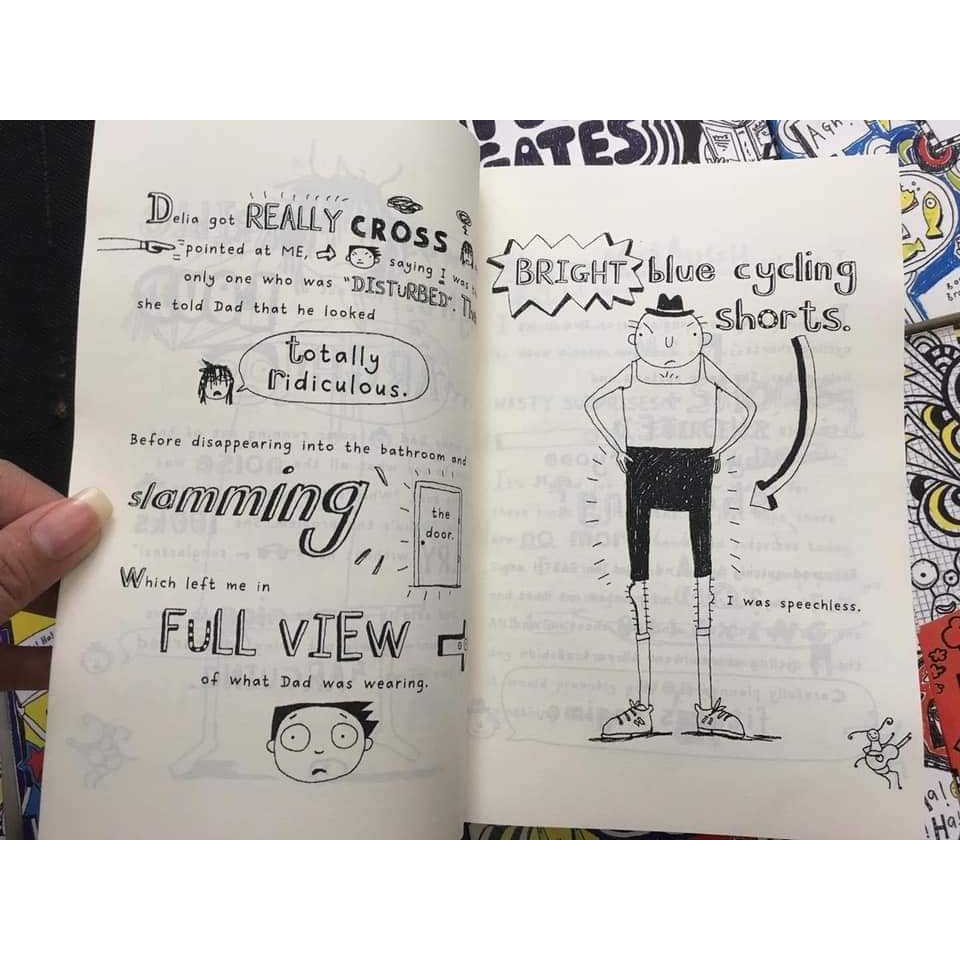 Delia got REALLY CROSS
pointed at ME, saying I was
only one who was "DISTURBED". Then
she told Dad that he looked
totally
ridiculous.
Before disappearing into the bathroom and
slamming
the
door.
Which left me in
FULL VIEW
of what Dad was wearing.
BRIGHT blue cycling
shorts.
I was speechless.
EATES
AGH!
Ha!